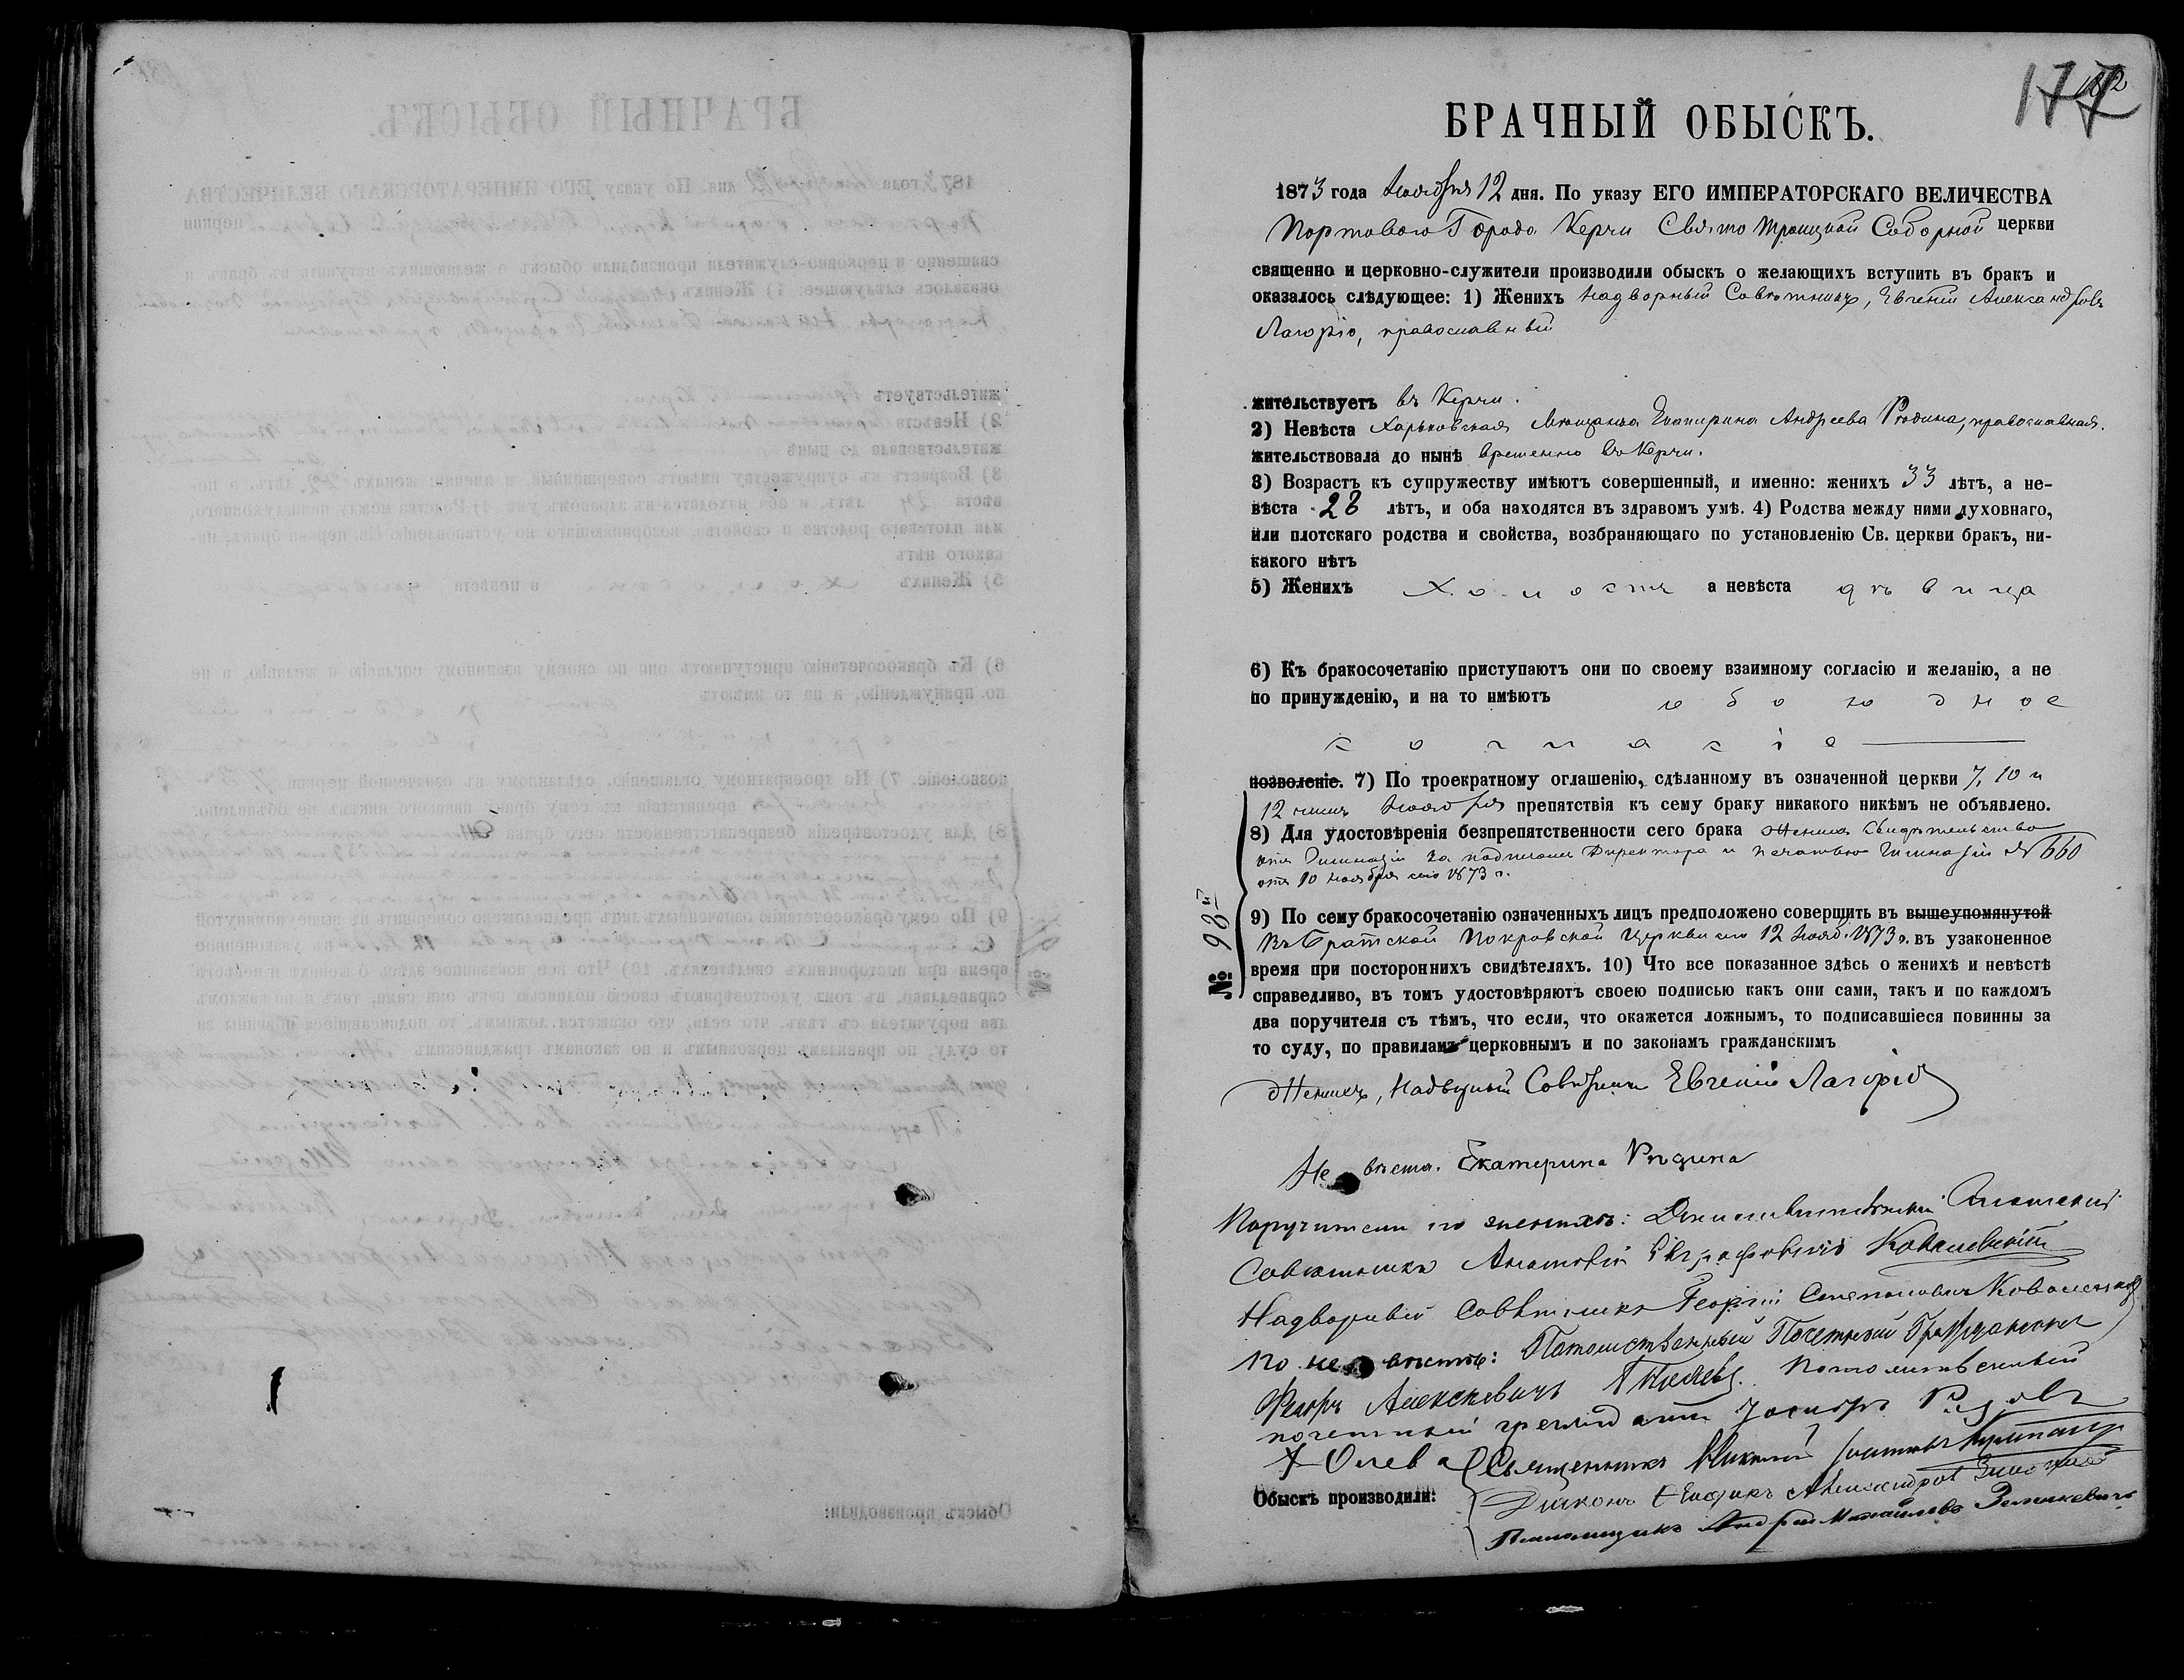 177
БРАЧНЫЙ ОБЫСКЪ.
1873 года Ноября 12 дня. По указу ЕГО ИМПЕРАТОРСКАГО ВЕЛИЧЕСТВА
Портоваго Города Керчи Свято Троицкой Соборной церкви
священно и церковно-служители производили обыскъ о желающихъ вступить въ бракъ и
оказалось слѣдующее: 1) Женихъ Надворный Совѣтникъ, Евгеній Александровъ
Лагоріо, православный
жительствуетъ въ Керчи.
2) Невѣста Харьковская Мѣщанка Екатерина Андреева Рѣдина, православная.
жительствовала до нынѣ временно въ Керчи.
3) Возрастъ къ супружеству имѣютъ совершенный, и именно: женихъ 33 лѣтъ, а не-
вѣста 28 лѣтъ, и оба находятся въ здравомъ умѣ. 4) Родства между ними духовнаго,
или плотскаго родства и свойства, возбраняющаго по установленію Св. церкви бракъ, ни-
какого нѣтъ
5) Женихъ холостъ а невѣста дѣвица
6) Къ бракосочетанію приступаютъ они по своему взаимному согласію и желанію, а не
по принужденію, и на то имѣютъ обоюдное
согласіе
позволеніе. 7) По троекратному оглашенію, сдѣланному въ означенной церкви 7, 10 и
12 чиселъ Ноября препятствія къ сему браку никакого никѣмъ не объявлено.
8) Для удостовѣренія безпрепятственности сего брака Жениха Свидѣтельство
отъ Гимназіи за подписомъ Директора и печатью Гимназіи № 660
отъ 10 Ноября сего 1873 г.
№ 93й
9) По сему бракосочетанію означенныхъ лицъ предположено совершить въ вышеупомянутой
Въ Братской Покровской Церкви сего 12 Нояб. 1873 г. въ узаконенное
время при постороннихъ свидѣтеляхъ. 10) Что все показанное здѣсь о женихѣ и невѣстѣ
справедливо, въ томъ удостовѣряютъ своею подписью какъ они сами, такъ и по каждомъ
два поручителя съ тѣмъ, что если, что окажется ложнымъ, то подписавшіеся повинны за
то суду, по правиламъ церковнымъ и по законамъ гражданскимъ
Женихъ, Надворный Совѣтникъ Евгеній Лагоріо
Невѣста. Екатерина Рѣдина
Поручители по женихѣ: Дѣйствительный Статскій
Совѣтникъ Анатолій Евграфовичъ Ковалевскій
Надворный Совѣтникъ Георгій Степановичъ
По невѣстѣ: Потомственный Почетный Гражданинъ
Федоръ Алексѣевичъ Потомственный
почетный гражданинъ
Священникъ
Обыскъ производили: Діаконъ
Пономарь Андрей Михайловъ